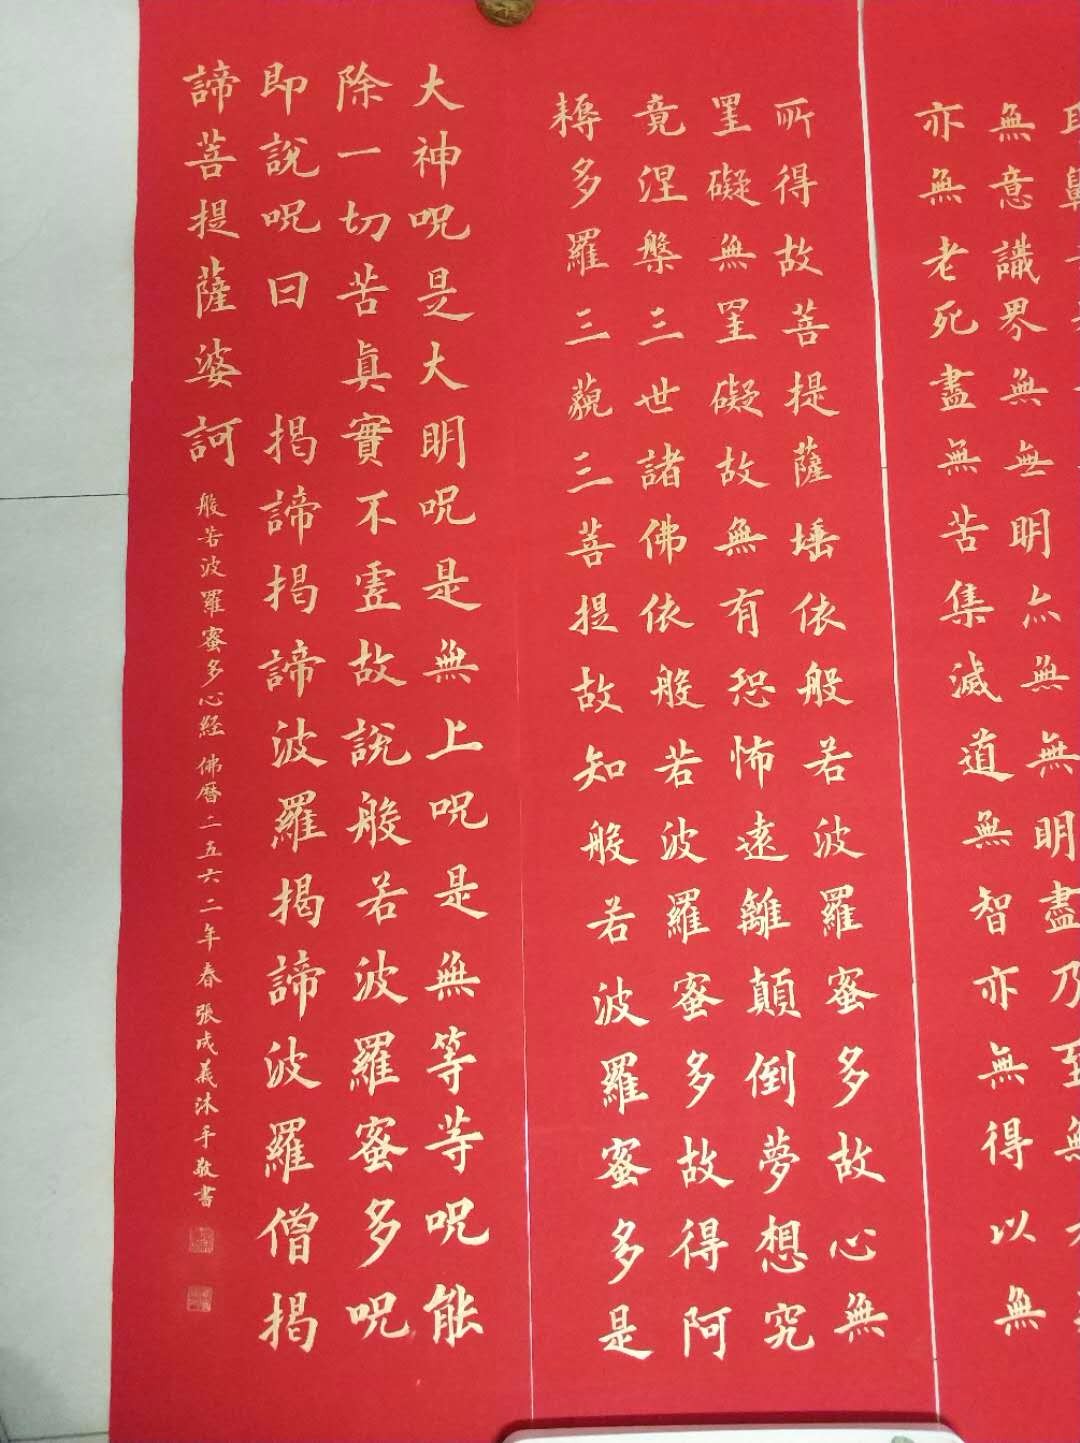 無意識界無無明亦無無明盡乃至無
亦無老死盡無苦集滅道無智亦無得以無
所得故菩提薩埵依般若波羅蜜多故心無
罣礙無罣礙故無有恐怖遠離顛倒夢想究
竟涅槃三世諸佛依般若波羅蜜多故得阿
耨多羅三藐三菩提故知般若波羅蜜多是
大神呪是大明呪是無上呪是無等等呪能
除一切苦真實不虛故說般若波羅蜜多呪
即說呪曰 揭諦揭諦波羅揭諦波羅僧揭
諦菩提薩婆訶 般若波羅蜜多心經 佛曆二五六二年春 張成義沐手敬書